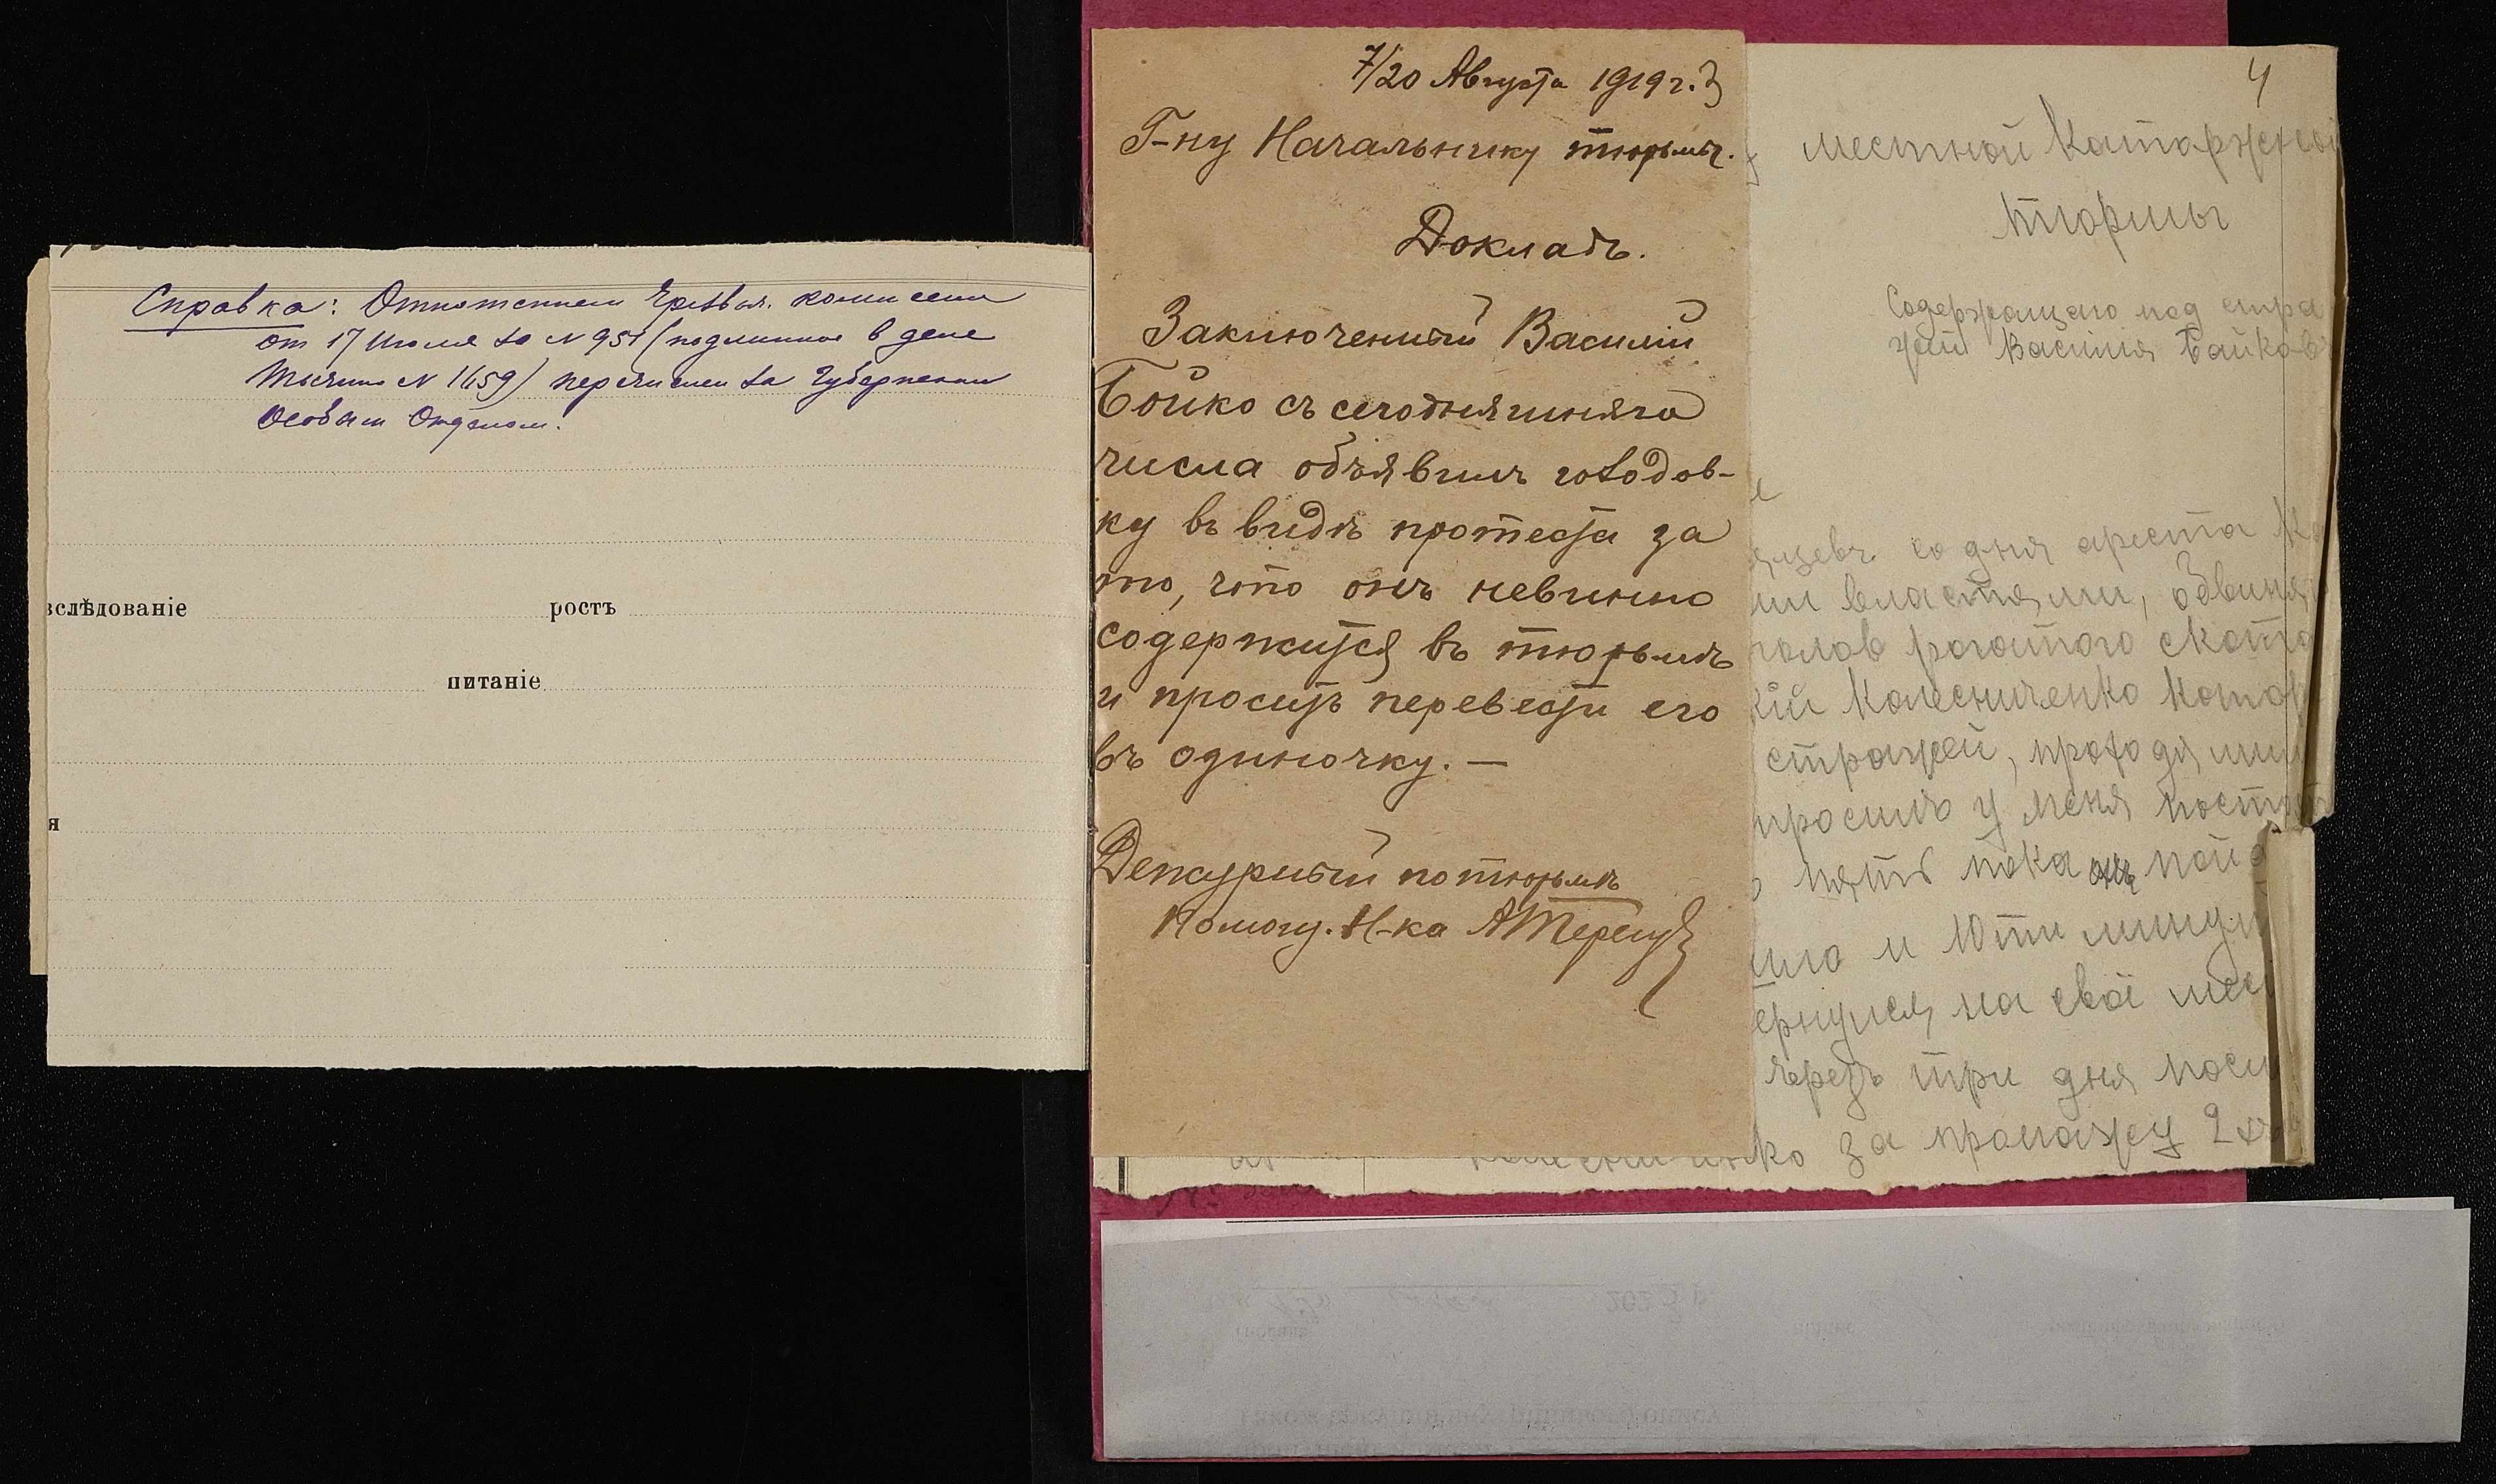 Справка: Отношением Чрезвыч. комиссии
от 17 Июля за № 951 (подлинное в деле
№ 1659) перечислен за Губернским
Особым Отделом.
вслѣдованіе ростъ
питаніе
я
7/20 Августа 1919 г. 3
Г-ну Начальнику тюрьмы.
Докладъ.
Заключенный Василій
Бойко съ сегодняшняго
числа объявилъ голодов-
ку въ видѣ протеста за
то, что онъ невинно
содержится въ тюрьмѣ
и проситъ перевести его
въ одиночку. —
Дежурный по тюрьмѣ
Помощ. Н-ка
4
местной Катаржной
тюрмы
Содержащаго под стра
жей Василия Байков
со дня ареста
властями, обвиня
голов рогатого скота
Колесниченко котор
стражей, проходя мим
просилъ у меня
пять пока онъ пойд
и 10ти минут
на своё мес
черезъ три дня посл
за пропажу 2х